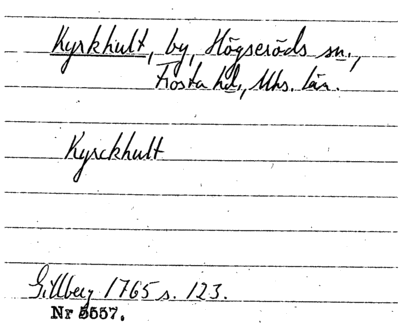 Kyrkhult, by, Högseröds sn.,
Frosta hd., Mhs. län.
Kyrckhult
Gillberg 1765 s. 123.
Nr 5557.